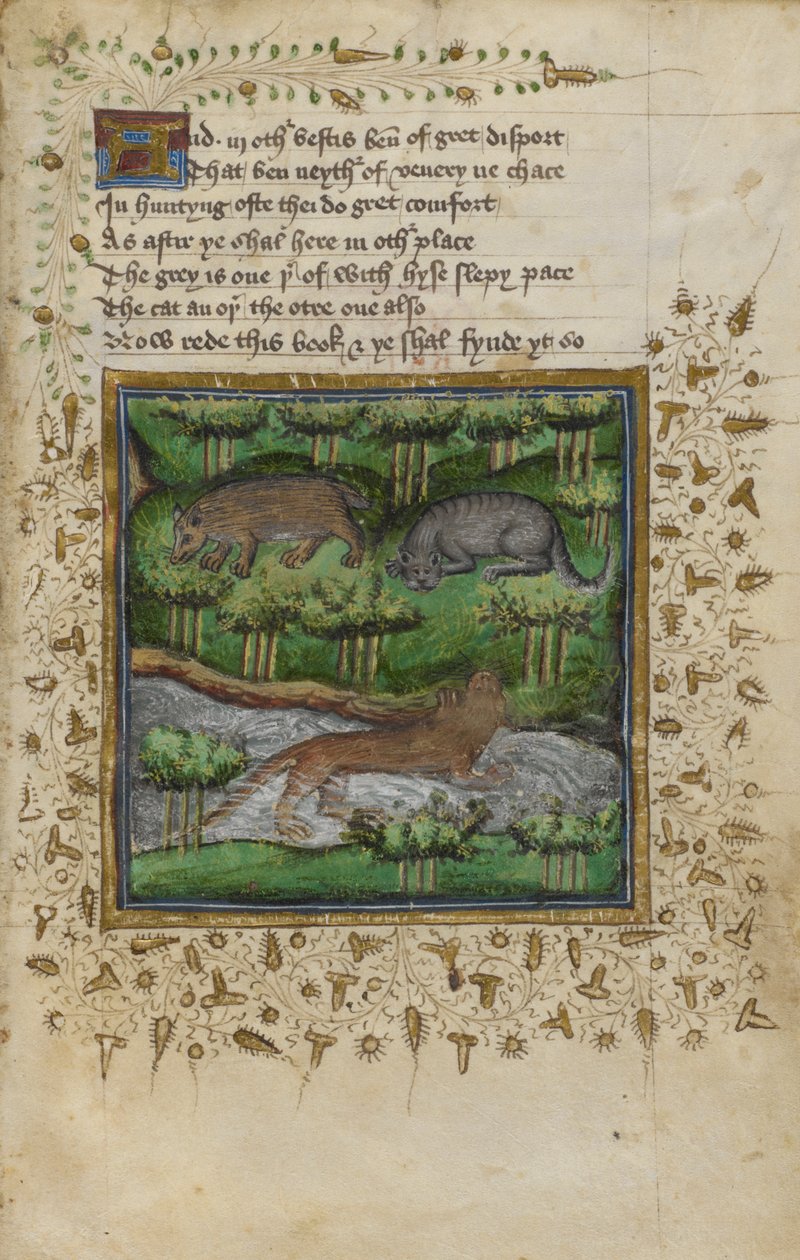 And · iij othr bestis ben of gret disport
That ben neythr of venery ne chace
In huntyng ofte thei do gret comfort
As aftir ye shal here in othr place
The grey is one þr of with hyse slepy pace
The cat an oþr the otre one also
Now rede this book & ye shal fynde yt so